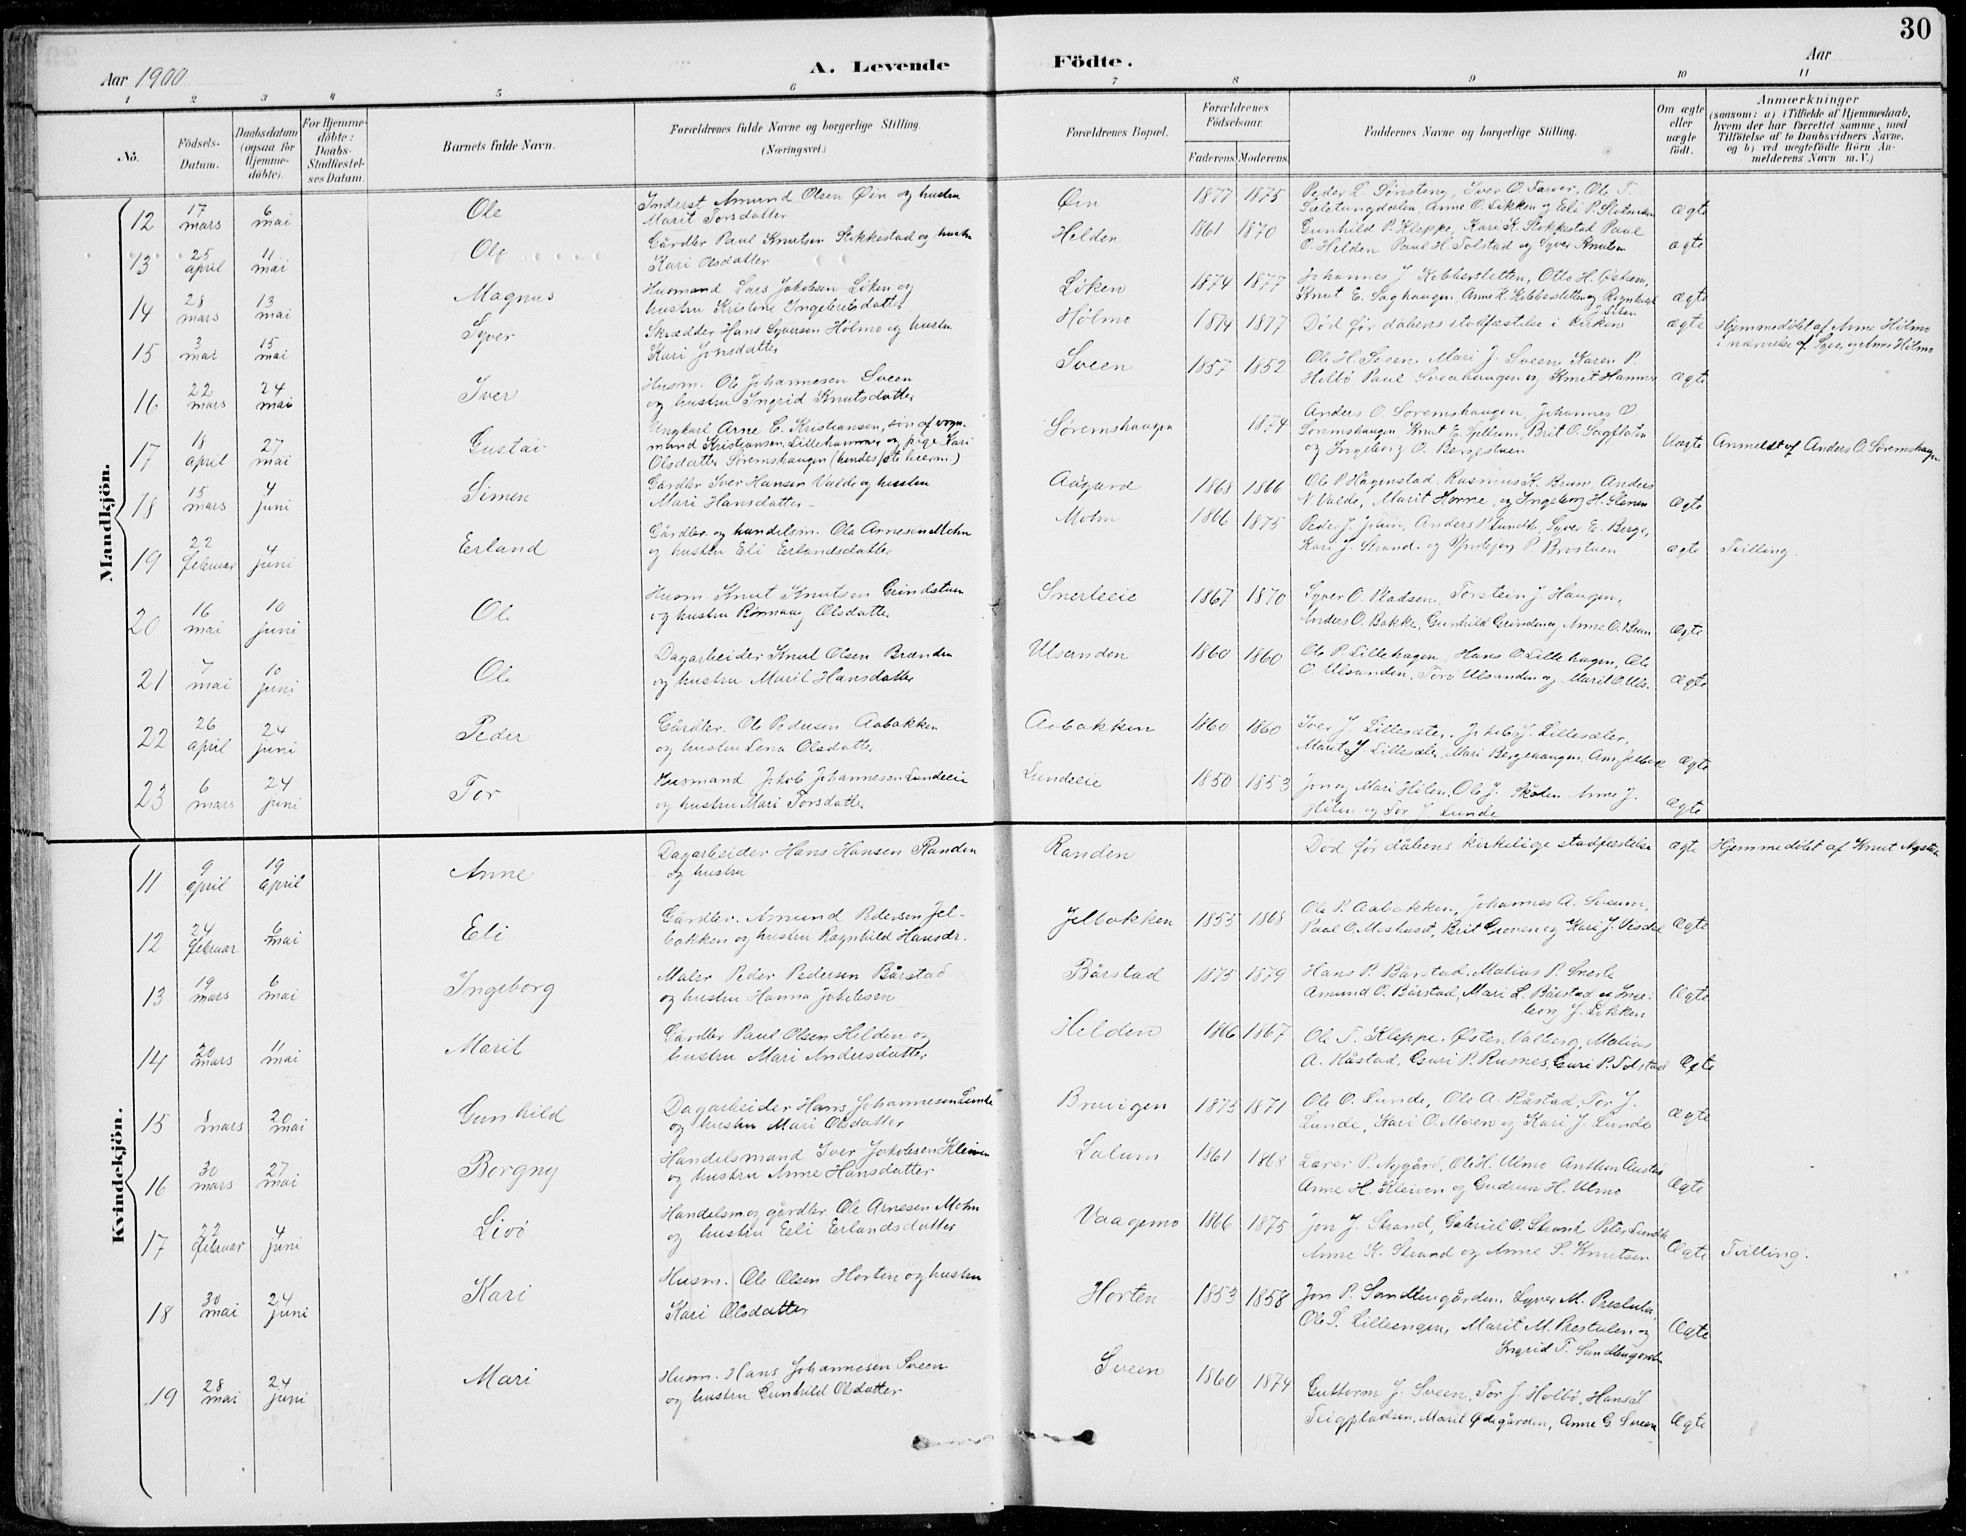 30
Aar 1900
A. Levende Födte.
Aar
1 2 3 4 5 6 7 8 9 10 11
No.
Födsels-Datum.
Daabsdatum (ogsaa for Hjemmedöbte).
For Hjemmedöbte: Daabs-Stadfæstelses Datum.
Barnets fulde Navn.
Forældrenes fulde Navne og borgerlige Stilling. (Næringsvei.)
Forældrenes Bopæl.
Forældrenes Födselsaar.
Faderens. Moderens.
Faddernes Navne og borgerlige Stilling.
Om ægte eller uægte födt.
Anmærkninger (saasom: a) i Tilfælde af Hjemmedaab, hvem der har forrettet samme, med Tilföielse af to Daabsvidners Navne, og b) ved uægtefödte Börn Anmelderens Navn m. V.)
Mandkjön.
12 17 mars 6 mai Ole Inderst Amund Olsen Øin og hustru
Marit Torsdatter Øin 1877 1875 Peder L. Sønsteng, Iver O. Faaver, Ole T.
Anne O. Løkken og Eli P. ægte
13 25 april 11 mai Ole Gårdbr Paul Knutsen Stikkestad og hustru
Kari Olsdatter Helden 1861 1870 Gunhild P. Kleppe, Kari K. Stokkestad Paul
O. Helden Paul H. Tolstad og Syver Knutsen ægte
14 28 mars 13 mai Magnus Husmand Lars Jakobsen Løken og
hustru Kristine Ingebretsdatter Løken 1874 1877 Johannes J. Kobberstetten, Otto H.
Knut E. Saghaugen Anne K. Kobberstetten og Ragnhild ægte
15 3 mai 15 mai Syver Skrædder Hans Syversen Hølmo og hustru
Kari Jonsdatter Hølmo 1874 1877 Død før dåbens stadfæstelse i kirken ægte Hjemmedøbt af Anne Hølmo
i nærvelse af Syver og Anne Hølmo
16 22 mars 24 mai Iver Husm. Ole Johannesen Sveen
og hustru Ingrid Knutsdatter Sveen 1857 1852 Ole H. Sveen, Mari J. Sveen, Karen P.
Holbø Paul Sveahaugen og Knut Hammer ægte
17 18 april 27 mai Gustav Ungkarl Arne C. Kristiansen, søn af vognmand Kristiansen, Lillehammer og pige Kari
Olsdatter Søremshaugen (hendes 1ste leierm.) Søremshaugen 1874 Anders O. Søremshaugen, Johannes O.
Søremshaugen Knut E. Sjellum, Brit O. Sagflaten
og Ingeborg O. Bergestuen Uægte Anmeldt af Anders O. Søremshaugen
18 15 mars 4 juni Simen Gårdbr Iver Hansen Valde og hustru
Mari Hansdatter Aagaard 1868 1866 Ole P. Hagenstad, Rasmus K. Brun, Anders
N. Valde, Marit Horne, og Ingeborg H. Stenen ægte
19 22 februar 4 juni Erland Gårdbr og handelsm. Ole Arnesen Mohn
og hustru Eli Erlandsdatter Mohn 1866 1875 Peder J. Anders P. Lundk, Syver E. Berge,
Kari J. Strand og P. Brostuen ægte Tvilling.
20 16 mai 10 juni Ole Husm. Knut Knutsen Grindstuen
og hustru Rønnaug Olsdatter Snerleeie 1867 1870 Syver O. Pladsen, Torstein J. Haugen,
Anders O. Bakke, Gunhild Grinden og Anne O. Brun ægte
21 7 mai 10 juni Ole Dagarbeider Knut Olsen Brænden
og hustru Marit Hansdatter Ulsanden 1860 1860 Ole P. Lillehagen, Hans O. Lillehagen, Ole
O. Ulsanden, Torø Ulsanden og Marit O. Uls. ægte
22 26 april 24 juni Peder Gårdbr. Ole Pedersen Aabakken
og hustru Lena Olsdatter Aabakken 1860 1860 Iver J. Lillesæter, Jakob J. Lillesæter,
Marit J. Lillesæter, Mari Bergehaugen, ægte
23 6 mars 24 juni Tor Husmand Jakob Johannesen Lundeeie
og hustru Mari Torsdatter Lundeeie 1850 1853 Jon og Mari Hølen, Ole J. Skoten Anne J.
Hølen og Tor J. Lunde ægte
Kvindekjön.
11 9 april 19 april Anne Dagarbeider Hans Hansen Randen
og hustru Randen Død før dåbens kirkelige stadfæstelse ægte Hjemmedøbt af Knut
12 24 februar 6 mai Eli Gårdbr. Amund Pedersen Jelbakken og hustru Ragnhild Hansdr. Jelbakken 1853 1868 Ole P. Aabakken, Johannes A. Sveum,
Paal O. Mishuset, Brit Groven og Kari J. Visdal ægte
13 19 mars 6 mai Ingeborg Maler Peder Pedersen Bårstad
og hustru Hanna Jakobsen Bårstad 1875 1879 Hans P. Bårstad, Matias P. Snerle
Amund O. Bårstad, Mari L. Bårstad og Ingeborg J. Løkken ægte
14 20 mars 11 mai Marit Gårdbr Paul Olsen Helden og
hustru Mari Andersdatter Helden 1866 1867 Ole T. Kleppe, Østen Valberg, Matias
A. Råstad, Guri P. Rusnes, Guri P. Tolstad ægte
15 1 mars 20 mai Gunhild Dagarbeider Hans Johannesen Lunde
og hustru Mari Olsdatter Bruvigen 1875 1871 Ole O. Lunde, Ole A. Råstad, Tor J.
Lunde, Kari O. Moren og Kari J. Lunde ægte
16 30 mars 27 mai Borgny Handelsmand Iver Jakobsen Kleiven
og hustru Anne Hansdatter Lalum 1861 1868 Lærer P. Nygård, Ole H. Ulmo Anthon Austad
Anne H. Kleiven og Gudrun H. Ulmo ægte
17 22 februar 4 juni Livø Handelsm og gårdbr. Ole Arnesen Mohn
og hustru Eli Erlandsdatter Vaagemo 1866 1875 Jon J. Strand, Gabriel O. Strand Peter Lundk
Anne K. Strand og Anne S. Knutsen ægte Tvilling.
18 30 mai 24 juni Kari Husm. Ole Olsen Horten og hustru
Kari Olsdatter Horten 1853 1858 Jon P. Sandbugården, Syver M. Prestulen,
Ole S. Lilleengen, Marit M. Prestulen og
Ingrid T. ægte
19 28 mai 24 juni Mari Husm. Hans Johannesen Sveen
og hustru Gunhild Olsdatter Sveen 1860 1874 Guttorm J. Sveen, Tor J. Holbø, Hans
Teigpladsen, Marit Ødegården, Anne G Sveen ægte